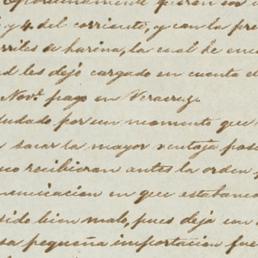 Oportunamente
y 4 del corriente, y con la pre
rriles de harina, la cual de
d les dejo cargado en cuenta
Nov.e pago en Veracruz.
dudado por un momento que
sacar la mayor ventaja
no recibieran antes la orden,
municacion en que estaban
sido bien malo, pues dejo con
sa pequeña importacion fue